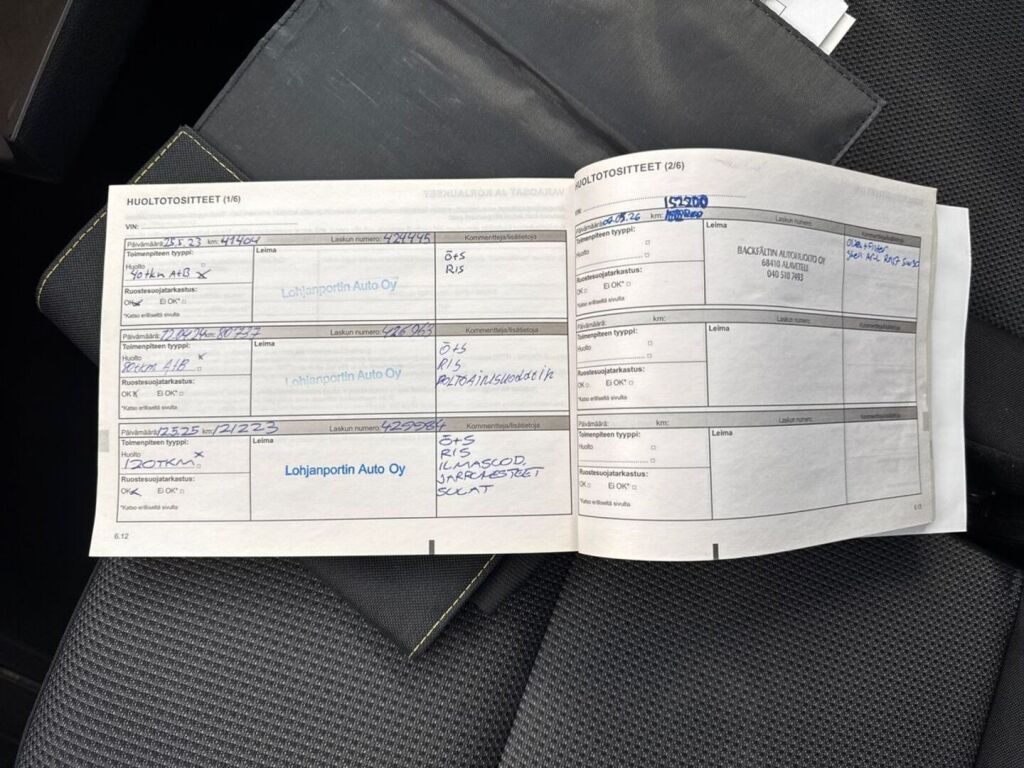 HUOLTOTOSITTEET (1/6)
VIN:
Päivämäärä: 25.5.23 km: 41404 Laskun numero: 424445 Kommentteja/lisätietoja
Toimenpiteen tyyppi: Leima
Huolto
40tkm A+B X
Ruostesuojatarkastus:
OK Ei OK*
*Katso erilliseltä sivulta
Lohjanportin Auto Oy
Ö+S
RIS
Päivämäärä: km: Laskun numero: Kommentteja/lisätietoja
Toimenpiteen tyyppi: Leima
Huolto X
80tkm A+B
Ruostesuojatarkastus:
OK X Ei OK*
*Katso erilliseltä sivulta
Lohjanportin Auto Oy
Ö+S
RIS
Päivämäärä: km: 121223 Laskun numero: 429984 Kommentteja/lisätietoja
Toimenpiteen tyyppi: Leima
Huolto X
120TKM
Ruostesuojatarkastus:
OK Ei OK*
*Katso erilliseltä sivulta
Lohjanportin Auto Oy
Ö+S
RIS
ILMASUOD.
JARRUNESTEET
SULAT
6.12
HUOLTOTOSITTEET (2/6)
VIN:
152200
Päivämäärä: km: Laskun numero: Kommentteja/lisätietoja
Toimenpiteen tyyppi: Leima
Huolto
Ruostesuojatarkastus:
OK Ei OK*
*Katso erilliseltä sivulta
BACKFÄLTIN AUTOHUOLTO OY
68410 ALAVETELI
040 510 7493
Päivämäärä: km: Laskun numero: Kommentteja/lisätietoja
Toimenpiteen tyyppi: Leima
Huolto
Ruostesuojatarkastus:
OK Ei OK*
*Katso erilliseltä sivulta
Päivämäärä: km: Laskun numero: Kommentteja/lisätietoja
Toimenpiteen tyyppi: Leima
Huolto
Ruostesuojatarkastus:
OK Ei OK*
*Katso erilliseltä sivulta